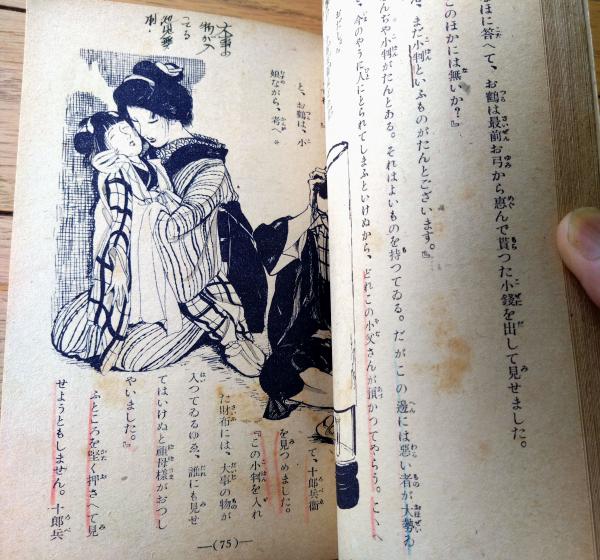 なほに答へて、お鶴は最前お弓から恵んで貰つた小錢を出して見せました。
このほかには無いか？』
、まだ小判といふものがたんとございます。』
んぢや小判がたんとある。それはよいものを持つてゐる。だがこの邊には悪い者が大勢ゐ
、今のやうに人にとられてしまふといけぬから、どれこの小父さんが預かつてやらう。こゝへ
と、お鶴は、小
娘ながら、考へ
て、十郎兵衞
を見つめました。
『この小判を入れ
た財布には、大事の物が
入つてゐるゆゑ、誰にも見せ
てはいけぬと祖母様がおつし
やいました。』
ふところを堅く押さへて見
せようともしません。十郎兵
大事の
物が入
つてる
―(75)―